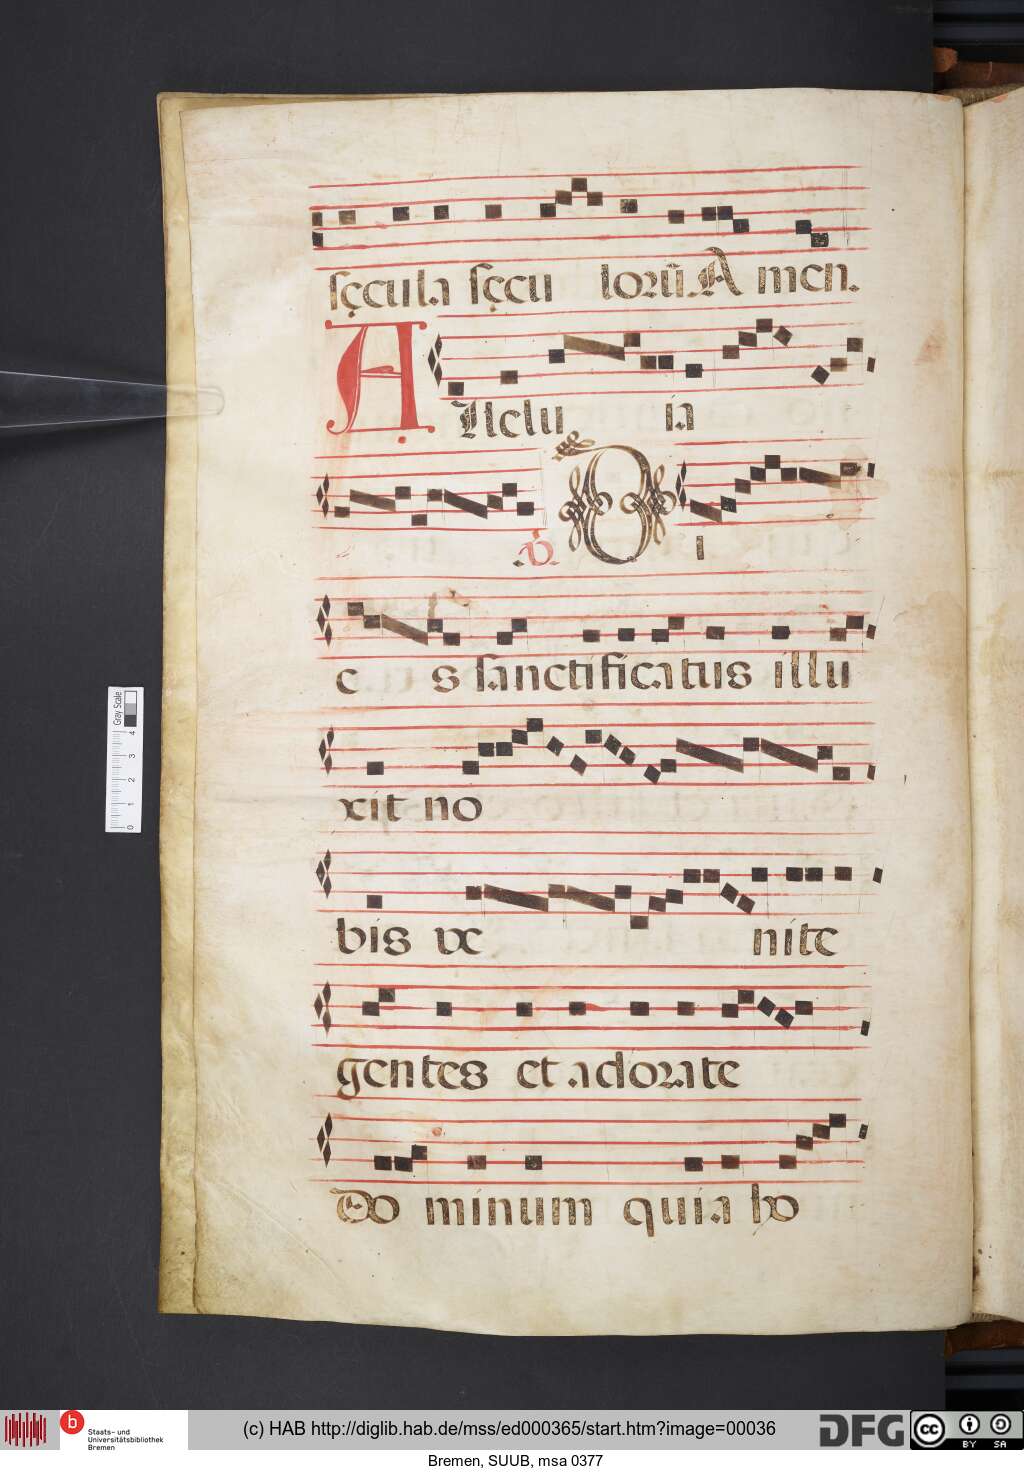 sęcula sęcu lorū. A men.
A Llelu ia
℣. D i
e s sanctificatus illu
xit no
bis ve nite
gentes et adorate
Do minum quia ho
Gray Scale
0 1 2 3 4
b
Staats- und
Universitätsbibliothek
Bremen
(c) HAB http://diglib.hab.de/mss/ed000365/start.htm?image=00036
DFG
cc BY SA
Bremen, SUUB, msa 0377